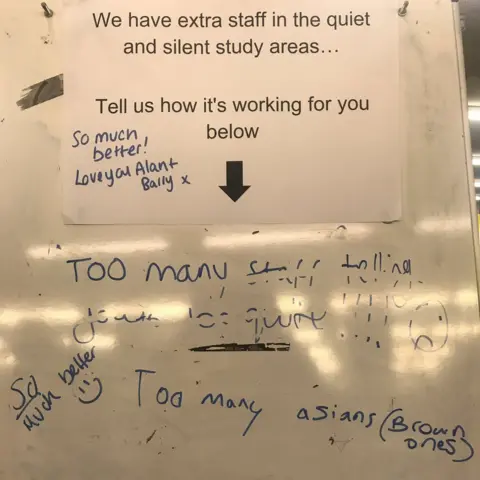 We have extra staff in the quiet
and silent study areas...
Tell us how it's working for you
below
So much
better!
Love you Alant
Bally x
TOO many staff telling
So
much better
Too many asians (Brown
ones)